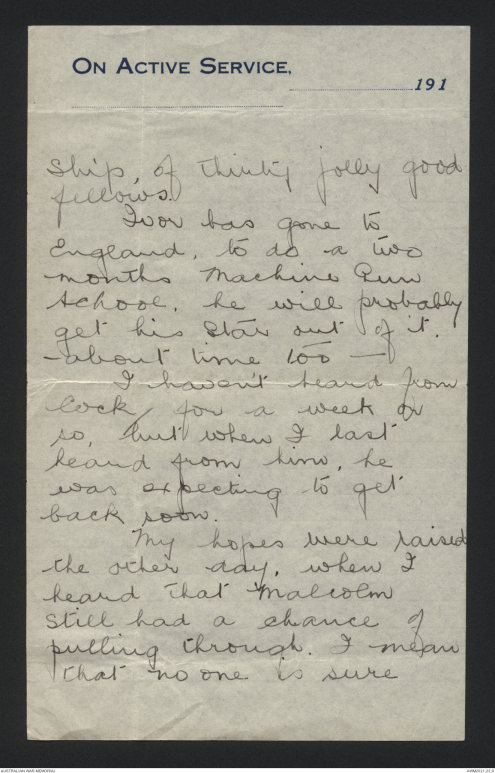 ON ACTIVE SERVICE,
191
ship, of thirty jolly good
fellows.
Ivor has gone to
England, to do a two
months Machine Gun
School, he will probably
get his Star out of it.
- about time too -
I haven't heard from
Cock, for a week or
so, but when I last
heard from him, he
was expecting to get
back soon.
My hopes were raised
the other day, when I
heard that Malcolm
still had a chance of
pulling through. I mean
that no one is sure
AUSTRALIAN WAR MEMORIAL